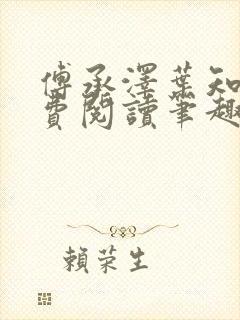 傅承澤葉知
費閱讀筆趣
賴荣生